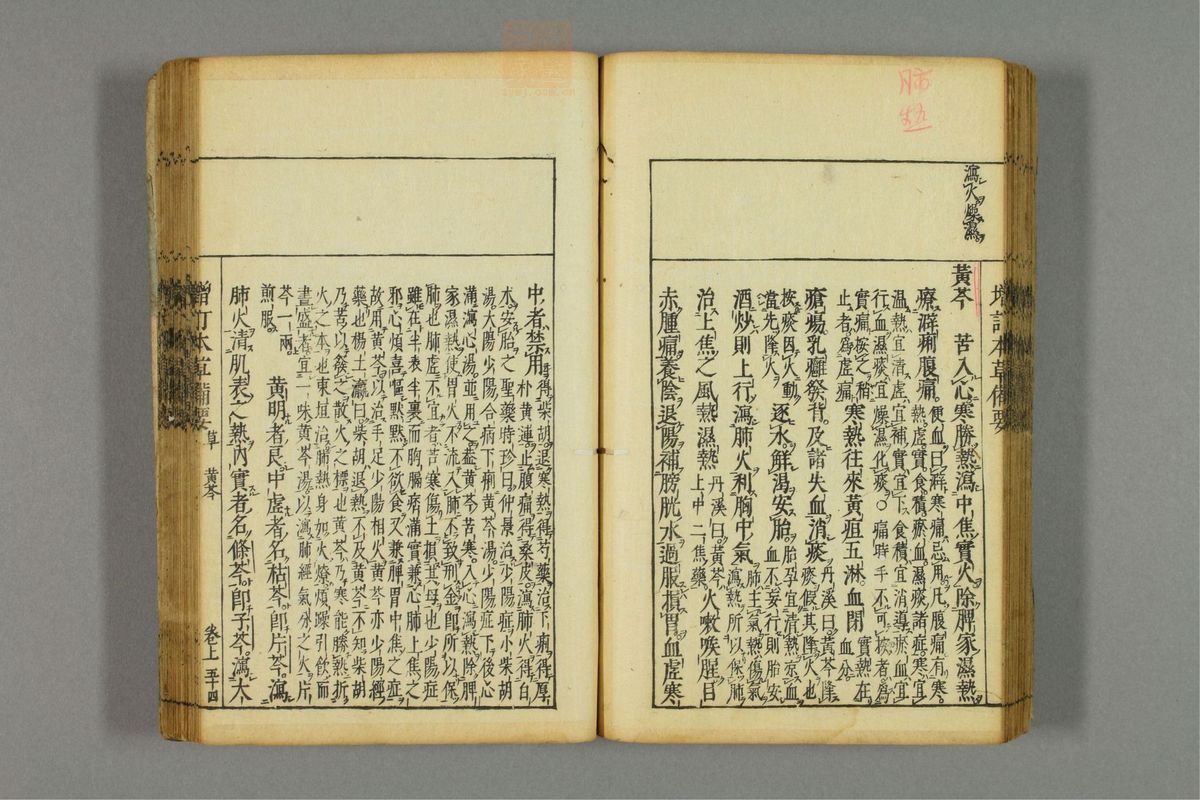 肺
熱
瀉火燥濕
增訂本草備要
黃芩　苦入心寒勝熱瀉中焦實火除脾家濕熱
療澼痢腹痛便血曰澼寒痛忌用凡腹痛有寒
熱虛實食積瘀血濕痰諸症寒宜
溫熱宜清虛宜補實宜下食積宜消導瘀血宜
行血濕痰宜燥濕化痰○痛時手不可按者為
實痛按之稍
止者為虛痛寒熱往來黃疸五淋血閉實熱在
血分
癰瘍乳癰發背及諸失血消痰丹溪曰黃芩降
痰假其降火也
按痰因火動
當先降火逐水解渴安胎胎孕宜清熱涼血
血不妄行則胎安
酒炒則上行瀉肺火利胸中氣肺主氣熱傷氣
瀉熱所以保肺
治上焦之風熱濕熱丹溪曰黃芩
上中二焦藥火嗽喉腥目
赤腫痛養陰退陽補膀胱水過服損胃血虛寒
中者禁用得柴胡退寒熱得芍藥治下痢得厚
朴黃連止腹痛得桑皮瀉肺火得白
朮安胎之聖藥時珍曰仲景治少陽症小柴胡
湯太陽少陽合病下痢黃芩湯少陽症下後心
滿瀉心湯並用之蓋黃芩苦寒入心瀉熱除脾
家濕熱使胃火不流入肺不致刑金即所以保
肺也肺虛不宜者苦寒傷土損其母也少陽症
雖在半表半裏而胸膈痞滿實兼心肺上焦之
邪心煩喜嘔默默不欲食又兼脾胃中焦之症
故用黃芩以治手足少陽相火黃芩亦少陽經
藥也楊士瀛曰柴胡退熱不及黃芩不知柴胡
乃苦以發之散火之標也黃芩乃寒能勝熱折
火之本也東垣治肺熱身如火燎煩躁引飲而
晝盛者宜一味黃芩湯以瀉肺經氣分之火片
芩一兩
煎服黃明者良中虛者名枯芩即片芩瀉
肺火清肌表之熱內實者名條芩即子芩瀉大
增訂本草備要　草　黃芩　卷上　五十四